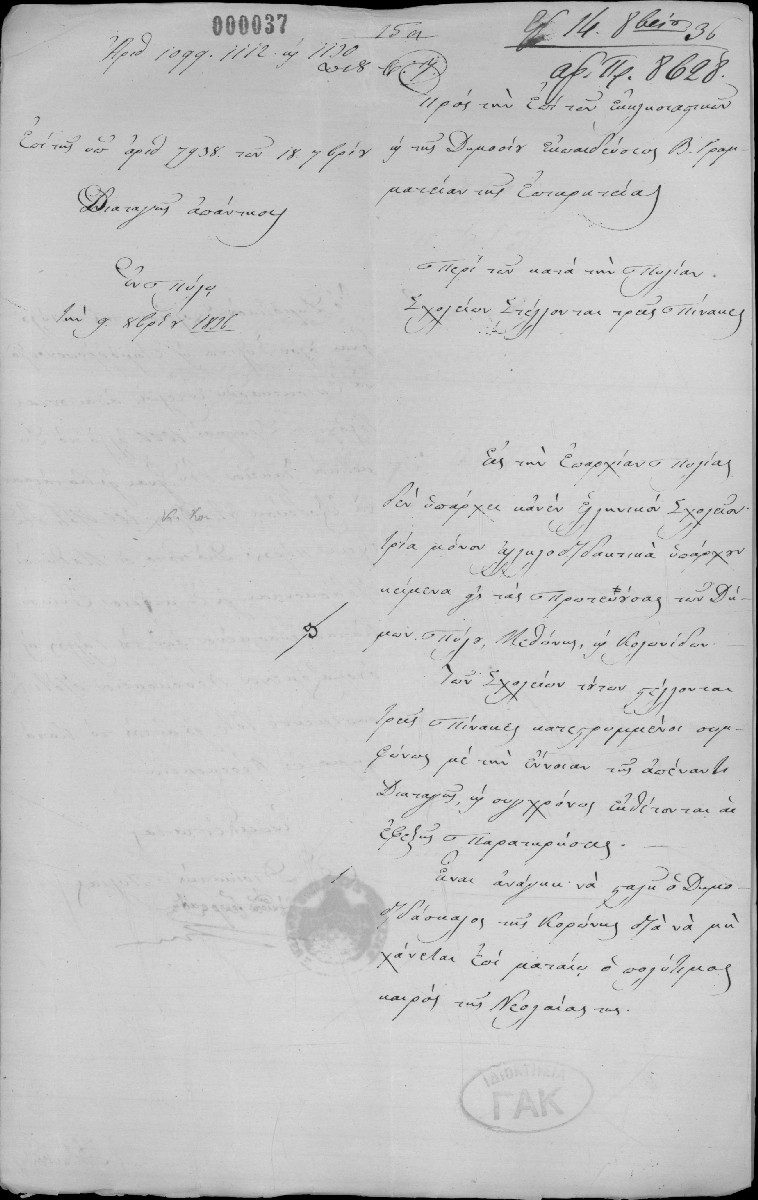 000037
Αριθ 1099. 1112. ϗ 1130
15 α
14. 8βρίο 36
αρ. Πρ. 8628.
Πρὸς τὴν Ἐπὶ τῶν Ἐκκλησιαστικῶν
ϗ τῆς Δημοσίου Ἐκπαιδεύσεως Β. Γραμ-
ματείαν τῆς Ἐπικρατείας
Ἐπὶ τῆς ὑπ ἀριθ 7938. τῶν 18. 7βρίου
Διαταγῆς ἀπάντησις
Ἐν Πύλῳ
τὴν 9. 8βρίου 1836
Περὶ τῶν κατὰ τὴν Πυλίαν.
Σχολείων Στέλλονται τρεῖς Πίνακες
Εἰς τὴν Ἐπαρχίαν Πυλίας
δὲν ὑπάρχει κανὲν ἑλληνικὸν Σχολεῖον.
τρία μόνον ἀλληλοδιδακτικὰ ὑπάρχουν
κείμενα εἰς τὰς Πρωτευούσας τῶν Δή-
μων. Πύλου, Μεθώνης, ϗ Κολωνίδων.
Τῶν Σχολείων τούτων στέλλονται
τρεῖς Πίνακες κατεστρωμμένοι συμ-
φώνως μὲ τὴν ἔννοιαν τῆς ἀπέναντι
Διαταγῆς, ϗ συγχρόνως ἐκθέτονται αἱ
ἐφεξῆς Παρατηρήσεις.
Εἶναι ἀνάγκη νὰ σταλῇ ὁ Δημο-
διδάσκαλος τῆς Κορώνης διὰ νὰ μὴ
χάνεται ἐπὶ ματαίῳ ὁ πολύτιμος
καιρὸς τῆς Νεολαίας της.
ΙΔΙΟΚΤΗΣΙΑ
ΓΑΚ